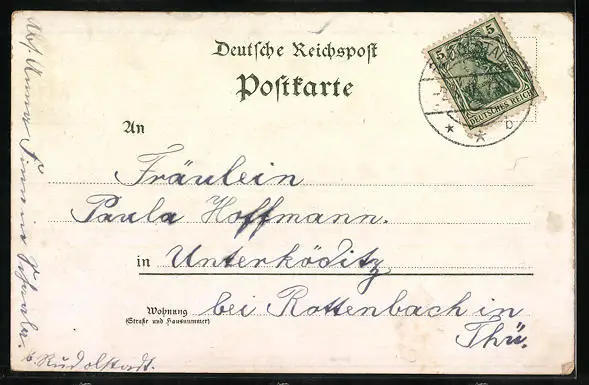 Deutsche Reichspost
Postkarte
An
Fräulein
Paula Hoffmann.
in Unterköditz
Wohnung
(Straße und Hausnummer)
bei Rottenbach in
Thü.
5 5
DEUTSCHES REICH
* * b
Abs. Anna
b. Rudolstadt.